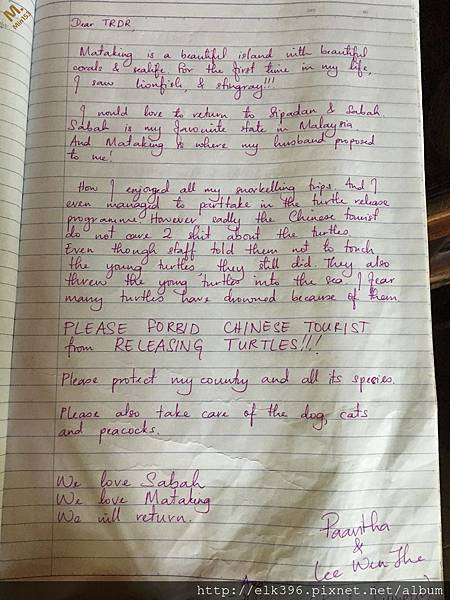 M.
Dear TRDR,
Mataking is a beautiful island with beautiful
corals & sealife. For the first time in my life,
I saw lionfish, & stingray!!!
I would love to return to Sipadan & Sabah.
Sabah is my favourite state in Malaysia
And Mataking is where my husband proposed
to me!
How I enjoyed all my snorkelling trips. And I
even managed to parttake in the turtle release
programme. However sadly the Chinese tourist
do not care 2 shit about the turtles.
Even though staff told them not to touch
the young turtles, they still did. They also
threw the young turtles into the sea. I fear
many turtles have drowned because of them.
PLEASE FORBID CHINESE TOURIST
from RELEASING TURTLES!!!
Please protect my country and all its species.
Please also take care of the dog, cats
and peacocks.
We love Sabah
We love Mataking
We will return.
Paavitha
&
Lee Wen Jhe
http://elk396.pixnet.net/album